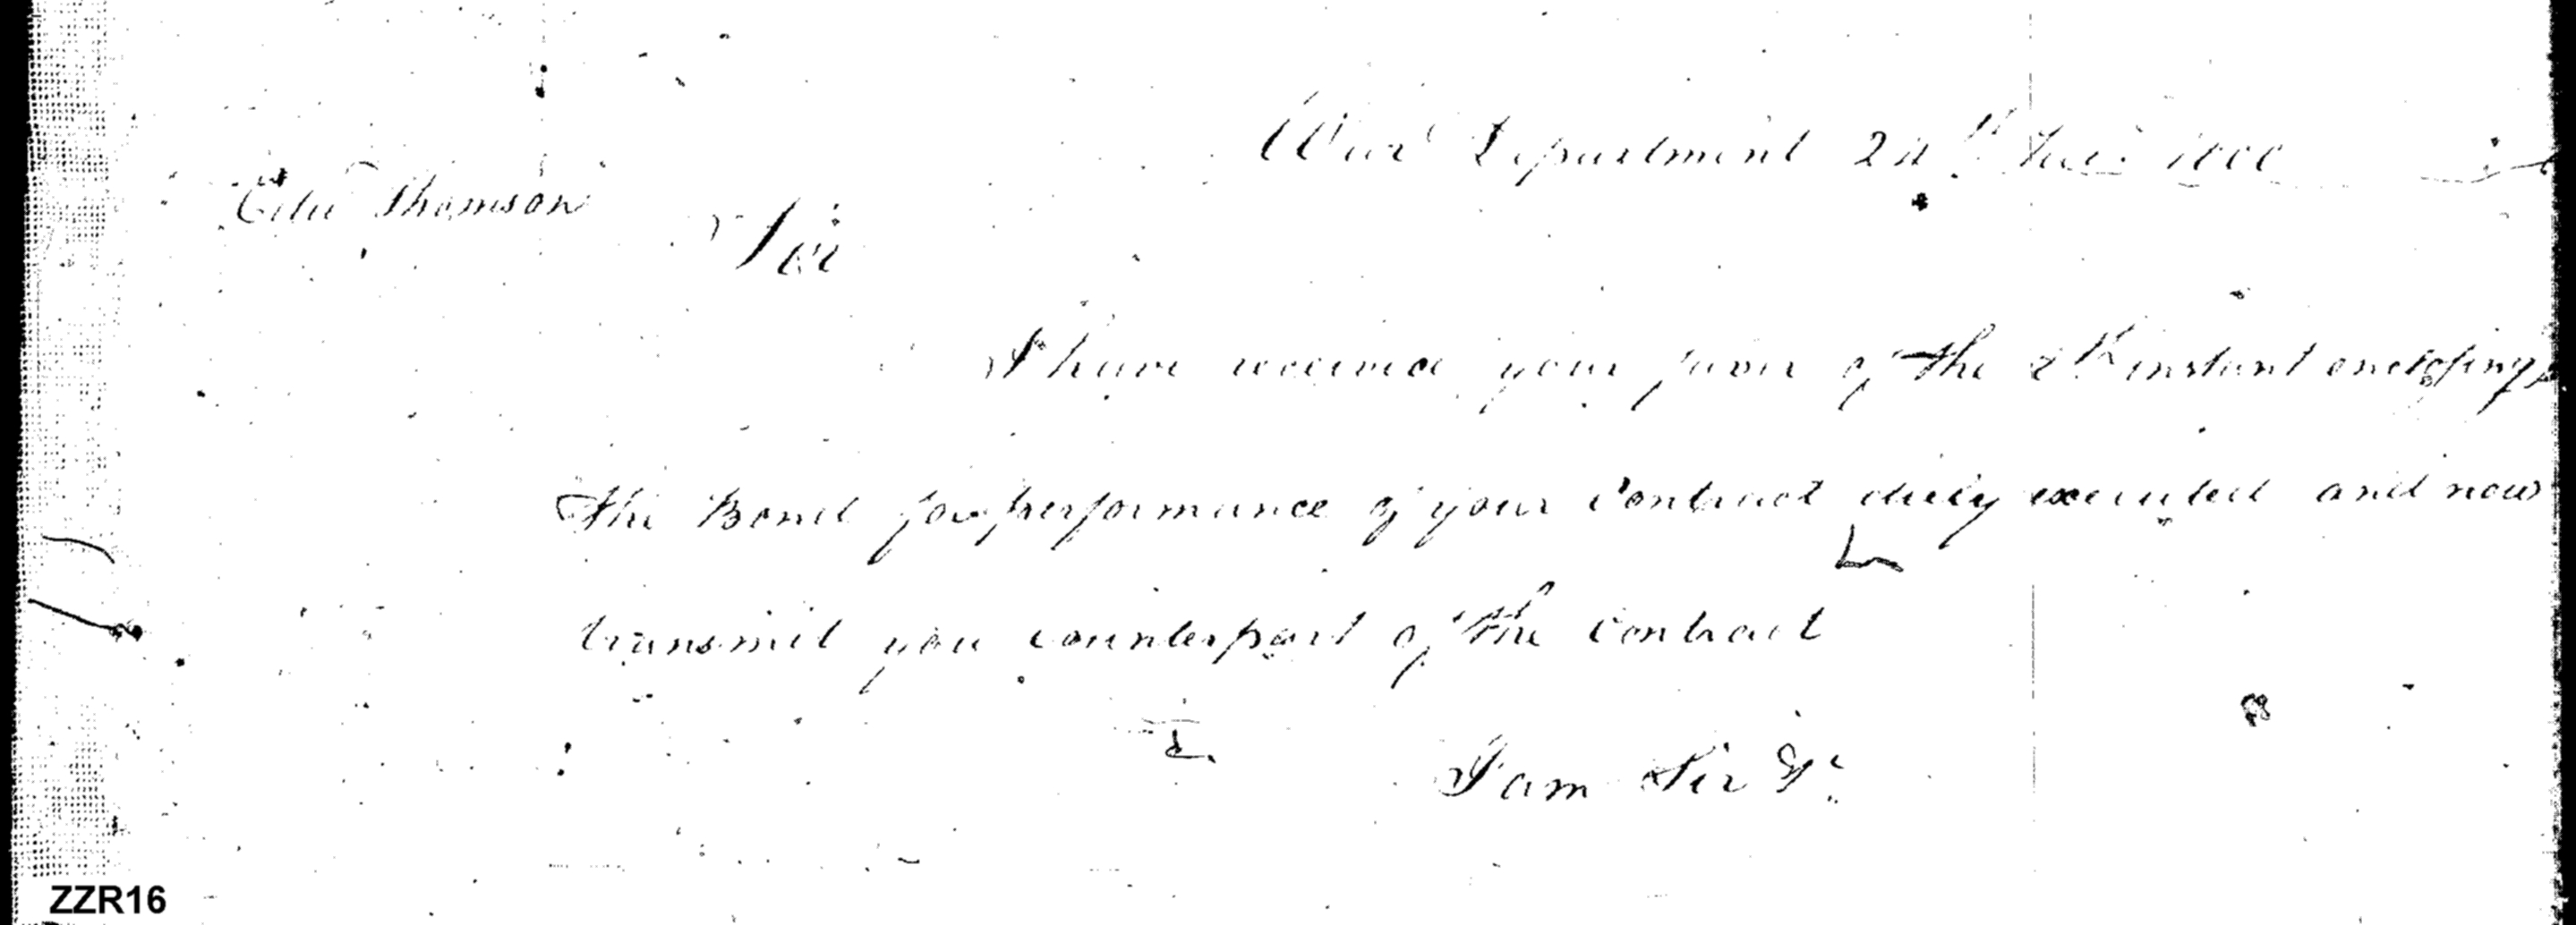 War Department 24th Decr. 1800
Edw Thomson
Sir
I have received your favor of the 2th instant enclosing
the Bond for performance of your Contract duly executed and now
transmit you counterpart of the Contract
I am Sir &c.
ZZR16